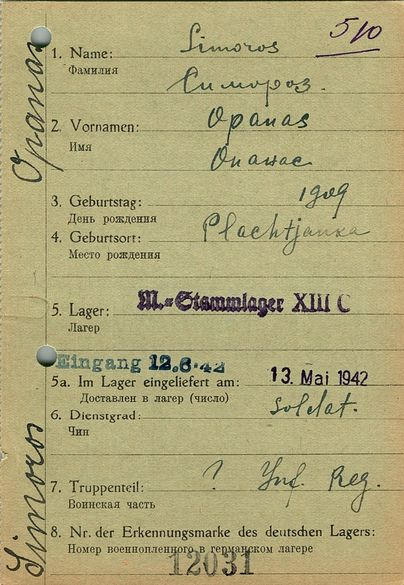 510
1. Name: Simoros
Фамилия Симороз.
2. Vornamen: Opanas
Имя Опанас
3. Geburtstag: 1909
День рождения
4. Geburtsort: Plachtjanka
Место рождения
5. Lager: M.=Stammlager XIII C
Лагер
Eingang 12.6.42
5a. Im Lager eingeliefert am: 13. Mai 1942
Доставлен в лагер (число)
6. Dienstgrad: Soldat.
Чин
7. Truppenteil: ? Inf. Reg.
Воинская часть
8. Nr. der Erkennungsmarke des deutschen Lagers:
Номер военнопленного в германском лагере
12031
Simoros Opanas